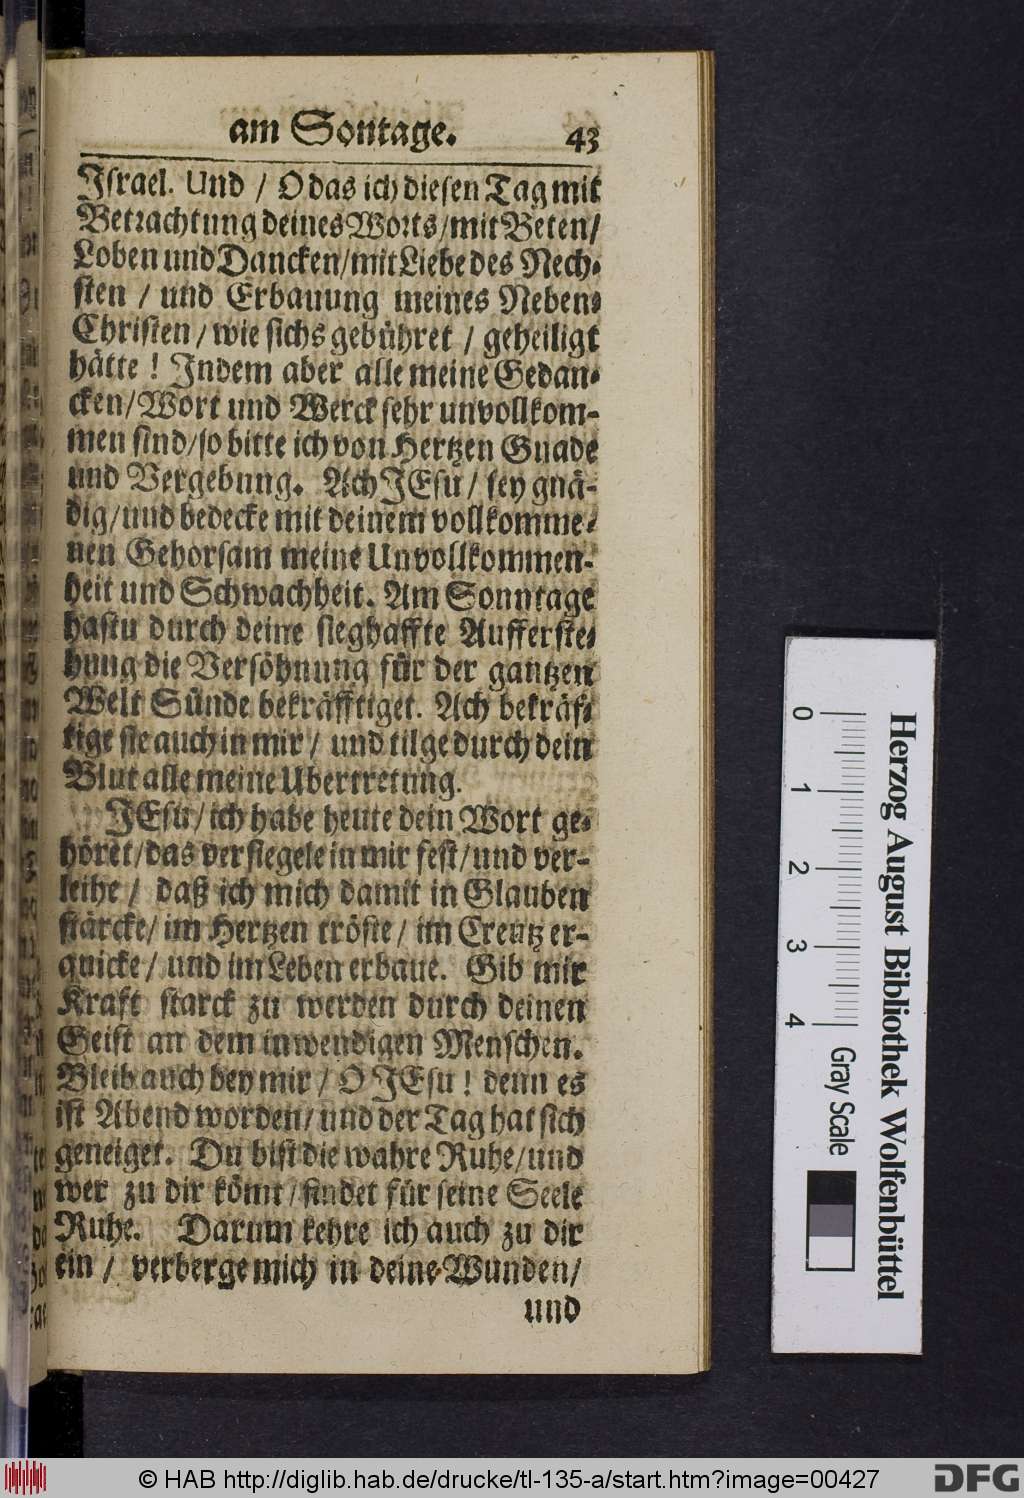 am Sontage. 43
Israel. Und / O das ich diesen Tag mit
Betrachtung deines Worts/mit Beten/
Loben und Dancken/mit Liebe des Nech-
sten / und Erbauung meines Neben-
Christen / wie sichs gebühret / geheiligt
hätte ! Indem aber alle meine Gedan-
cken/Wort und Werck sehr unvollkom-
men sind/so bitte ich von Hertzen Gnade
und Vergebung. Ach JEsu / sey gnä-
dig/und bedecke mit deinem vollkomme-
nen Gehorsam meine Unvollkommen-
heit und Schwachheit. Am Sonntage
hastu durch deine sieghaffte Aufferste-
hung die Versöhnung für der gantzen
Welt Sünde bekräfftiget. Ach bekräf-
tige sie auch in mir / und tilge durch dein
Blut alle meine Ubertretung.
JEsu/ ich habe heute dein Wort ge-
höret/das versiegele in mir fest/und ver-
leihe / daß ich mich damit in Glauben
stärcke/ im Hertzen tröste / im Creutz er-
quicke / und im Leben erbaue. Gib mir
Kraft starck zu werden durch deinen
Geist an dem inwendigen Menschen.
Bleib auch bey mir / O JEsu ! denn es
ist Abend worden/ und der Tag hat sich
geneiget. Du bist die wahre Ruhe/und
wer zu dir kömt / findet für seine Seele
Ruhe. Darum kehre ich auch zu dir
ein / verberge mich in deine Wunden/
und
0 1 2 3 4 Gray Scale
Herzog August Bibliothek Wolfenbüttel
© HAB http://diglib.hab.de/drucke/tl-135-a/start.htm?image=00427
DFG